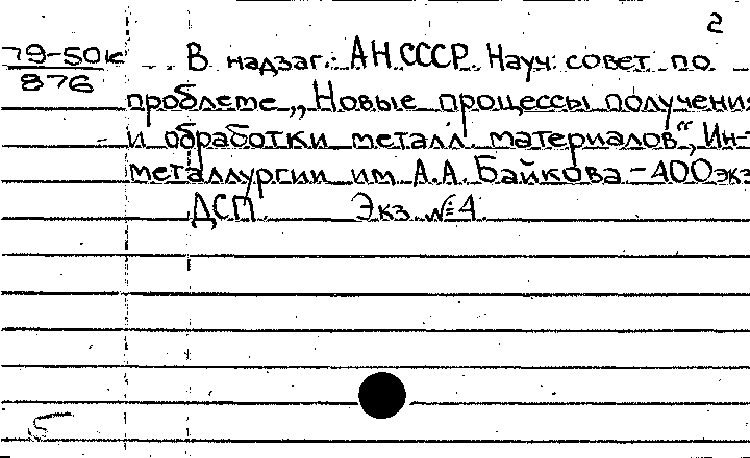 2
79-50к В надзаг.: АН СССР. Науч. совет по
876
проблеме „Новые процессы получения
и обработки металл. материалов“, Ин-т
металлургии им. А.А. Байкова. - 400 экз.
ДСП Экз. №4.
5